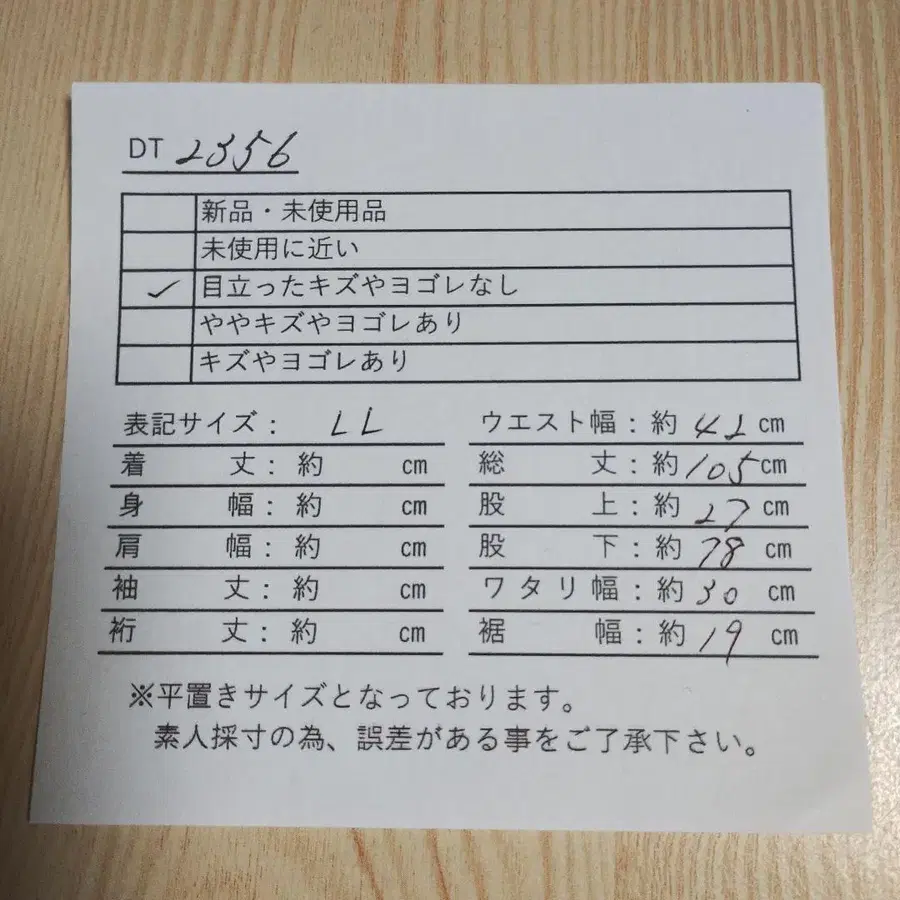 DT 2356
新品・未使用品
未使用に近い
✓ 目立ったキズやヨゴレなし
ややキズやヨゴレあり
キズやヨゴレあり
表記サイズ： LL
着丈：約 cm
身幅：約 cm
肩幅：約 cm
袖丈：約 cm
裄丈：約 cm
ウエスト幅：約 41 cm
総丈：約 105 cm
股上：約 27 cm
股下：約 78 cm
ワタリ幅：約 30 cm
裾幅：約 19 cm
※平置きサイズとなっております。
素人採寸の為、誤差がある事をご了承下さい。